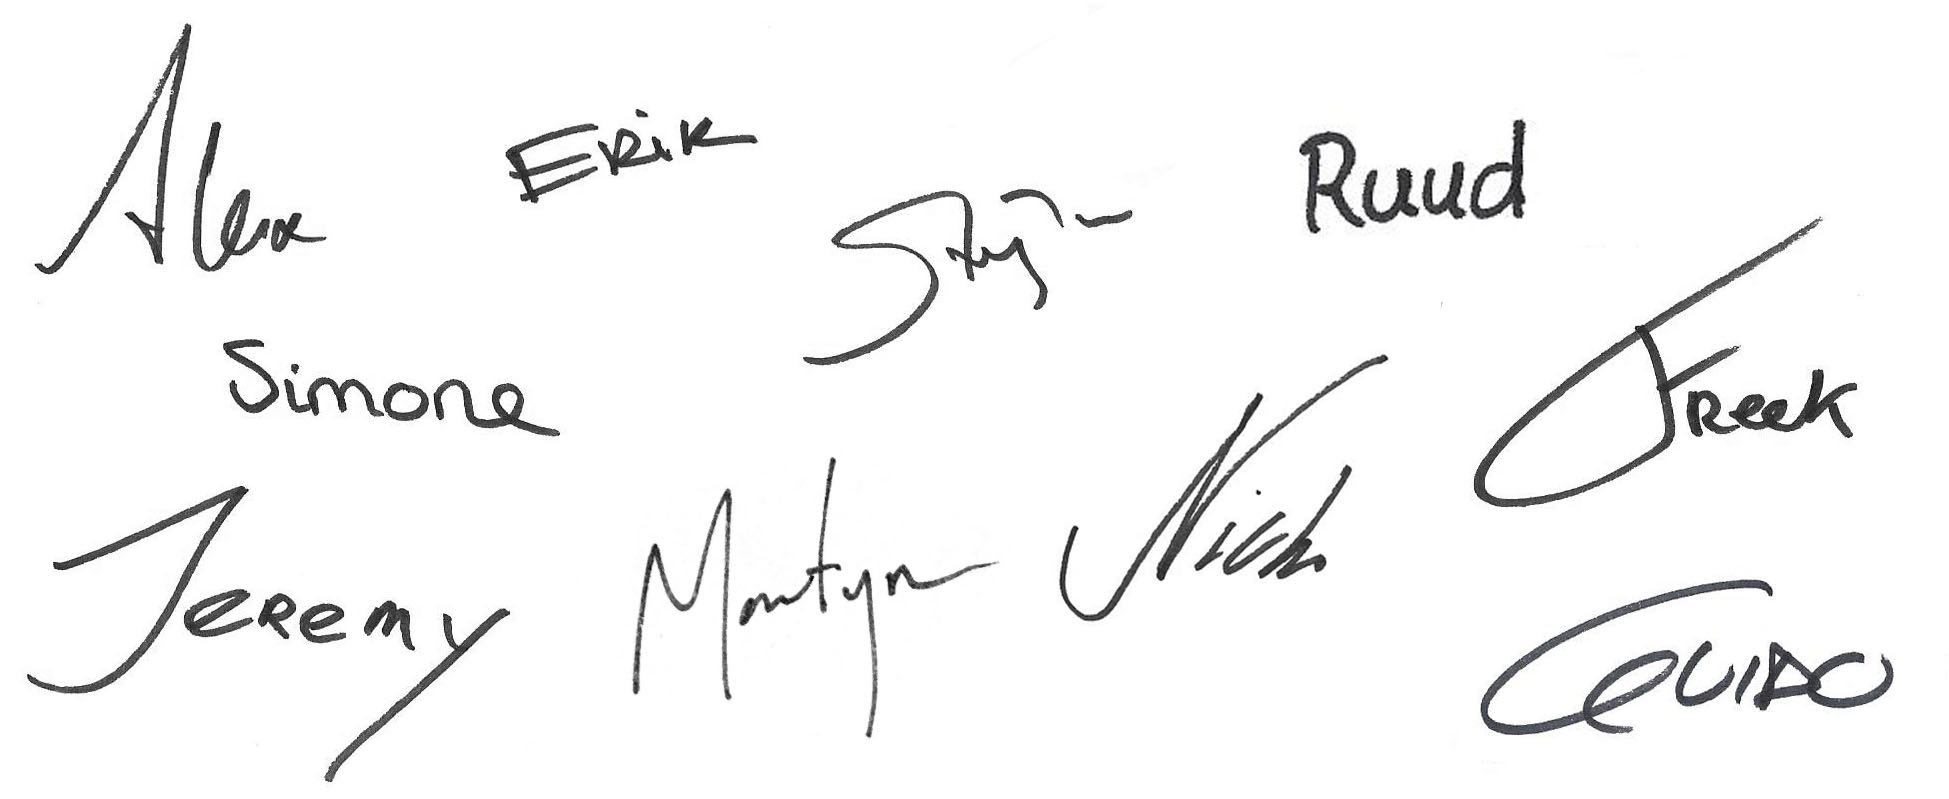 Alex
Erik
Stijn
Ruud
Simone
Freek
Jeremy
Martyn
Guido